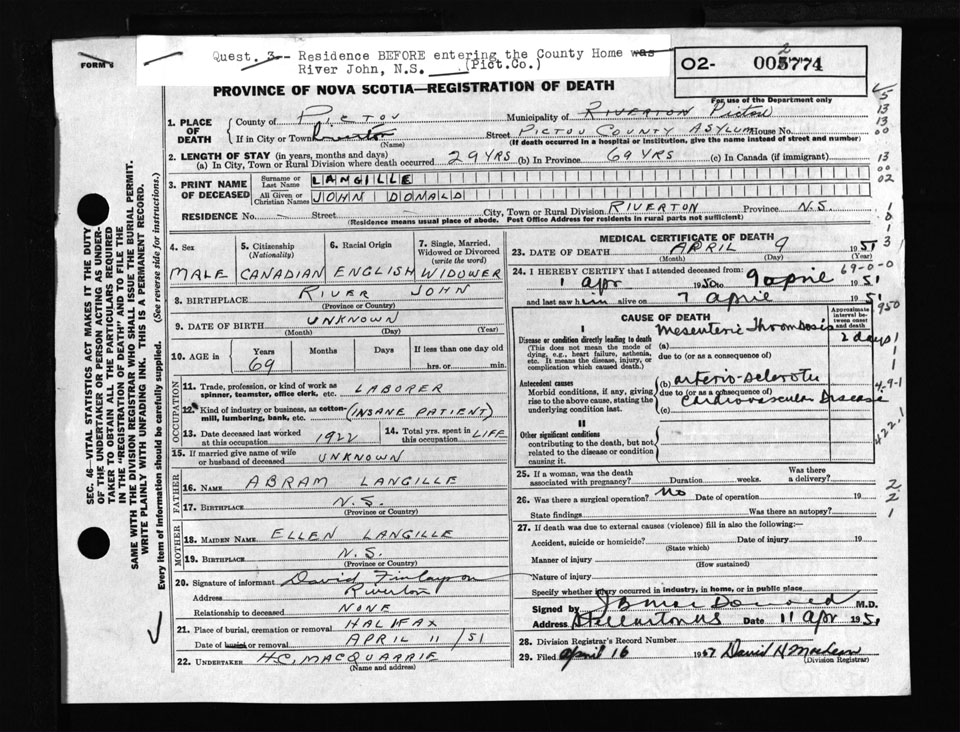 FORM 6
Quest. 3-- Residence BEFORE entering the County Home was
River John, N.S. (Pict.Co.)
02- 005774
2
For use of the Department only
PROVINCE OF NOVA SCOTIA—REGISTRATION OF DEATH
1. PLACE OF DEATH
County of PICTOU Municipality of RIVERTON Pictou
If in City or Town Riverton (Name) Street PICTOU COUNTY ASYLUM House No.
(If death occurred in a hospital or institution, give the name instead of street and number)
2. LENGTH OF STAY (in years, months and days)
(a) In City, Town or Rural Division where death occurred 29 YRS (b) In Province 69 YRS (c) In Canada (if immigrant)
3. PRINT NAME OF DECEASED
Surname or Last Name LANGILLE
All Given or Christian Names JOHN DONALD
RESIDENCE No. – Street – City, Town or Rural Division RIVERTON Province N.S.
(Residence means usual place of abode. Post Office Address for residents in rural parts not sufficient)
4. Sex
MALE
5. Citizenship (Nationality)
CANADIAN
6. Racial Origin
ENGLISH
7. Single, Married, Widowed or Divorced (write the word)
WIDOWER
8. BIRTHPLACE RIVER JOHN
(Province or Country)
9. DATE OF BIRTH UNKNOWN
(Month) (Day) (Year)
10. AGE in Years Months Days If less than one day old
69 hrs. or min.
OCCUPATION
11. Trade, profession, or kind of work as spinner, teamster, office clerk, etc. LABORER
12. Kind of industry or business, as cotton-mill, lumbering, bank, etc. (INSANE PATIENT)
13. Date deceased last worked at this occupation 1922
14. Total yrs. spent in this occupation LIFE
15. If married give name of wife or husband of deceased UNKNOWN
FATHER
16. NAME ABRAM LANGILLE
17. BIRTHPLACE N.S.
(Province or Country)
MOTHER
18. MAIDEN NAME ELLEN LANGILLE
19. BIRTHPLACE N.S.
(Province or Country)
20. Signature of informant David Finlayson
Address Riverton
Relationship to deceased NONE
21. Place of burial, cremation or removal HALIFAX
Date of burial or removal APRIL 11 /51
22. UNDERTAKER H.C. MACQUARRIE
(Name and address)
MEDICAL CERTIFICATE OF DEATH
23. DATE OF DEATH APRIL 9 1951
(Month) (Day) (Year)
24. I HEREBY CERTIFY that I attended deceased from:
69-0-0
1 apr 1950 to 9 april 1951
and last saw him alive on 7 april 1951
CAUSE OF DEATH
Approximate interval between onset and death
I
Disease or condition directly leading to death
(This does not mean the mode of dying, e.g., heart failure, asthenia, etc. It means the disease, injury, or complication which caused death.)
(a) Mesenteric Thrombosis 2 days
due to (or as a consequence of)
Antecedent causes
Morbid conditions, if any, giving rise to the above cause, stating the underlying condition last.
(b) arterio-sclerotic
due to (or as a consequence of)
Cardiovascular Disease
(c)
II
Other significant conditions
contributing to the death, but not related to the disease or condition causing it.
25. If a woman, was the death associated with pregnancy? Duration weeks. Was there a delivery?
26. Was there a surgical operation? No Date of operation 19
State findings Was there an autopsy?
27. If death was due to external causes (violence) fill in also the following:—
Accident, suicide or homicide? (State which) Date of injury 19
Manner of injury (How sustained)
Nature of injury
Specify whether injury occurred in industry, in home, or in public place
Signed by M.D.
Address Stellarton NS Date 11 apr 1951
28. Division Registrar's Record Number
29. Filed april 16 195 David H MacLean
(Division Registrar)
SEC. 46—VITAL STATISTICS ACT MAKES IT THE DUTY
OF THE UNDERTAKER OR PERSON ACTING AS UNDER-
TAKER TO OBTAIN ALL THE PARTICULARS REQUIRED
IN THE "REGISTRATION OF DEATH" AND TO FILE THE
SAME WITH THE DIVISION REGISTRAR WHO SHALL ISSUE THE BURIAL PERMIT.
WRITE PLAINLY WITH UNFADING INK. THIS IS A PERMANENT RECORD.
Every item of information should be carefully supplied. (See reverse side for instructions.)
5
13
13
00
13
00
02
3
950
4-9-1
422.1
2
2
1